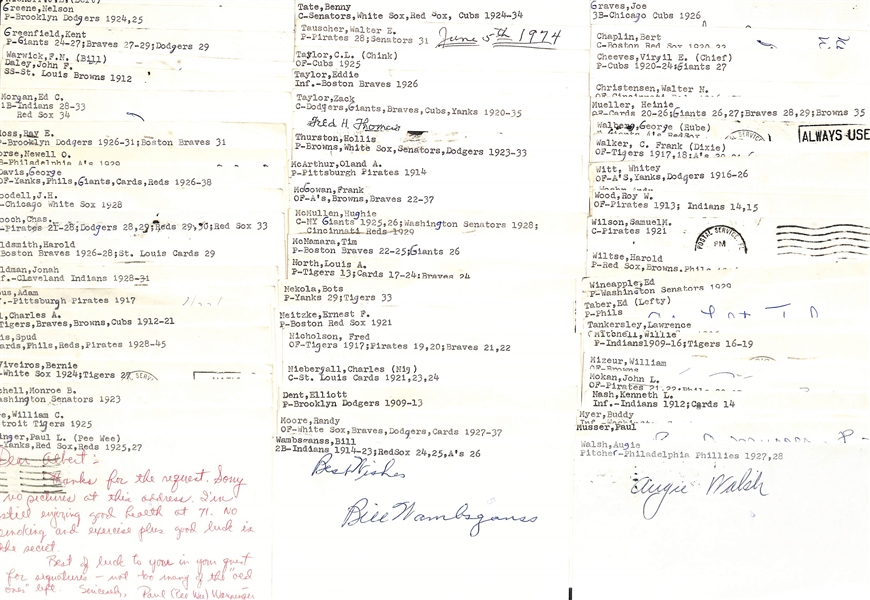 Greene,Nelson
P-Brooklyn Dodgers 1924,25
Greenfield,Kent
P-Giants 24-27;Braves 27-29;Dodgers 29
Warwick,F.N. (Bill)
Daley,John F.
SS-St. Louis Browns 1912
Morgan,Ed C.
1B-Indians 28-33
Red Sox 34
Moss,Ray E.
P-Brooklyn Dodgers 1926-31;Boston Braves 31
orse,Newell O.
B-Philadelphia A's 1929
Davis,George
OF-Yanks,Phils,Giants,Cards,Reds 1926-38
oodell,J.H.
-Chicago White Sox 1928
ooch,Chas.
Pirates 21-28;Dodgers 28,29;Reds 29,30;Red Sox 33
ldsmith,Harold
Boston Braves 1926-28;St. Louis Cards 29
ldman,Jonah
f.-Cleveland Indians 1928-31
us,Adam
f.-Pittsburgh Pirates 1917
l,Charles A.
Tigers,Braves,Browns,Cubs 1912-21
is,Spud
ards,Phils,Reds,Pirates 1928-45
Viveiros,Bernie
-White Sox 1924;Tigers 27
chell,Monroe B.
ashington Senators 1923
e,William C.
troit Tigers 1925
inger,Paul L. (Pee Wee)
Yanks,Red Sox,Reds 1925,27
Dear Albert:
Thanks for the request. Sorry
no pictures at this address. I'm
still enjoying good health at 71. No
smoking and exercise plus good luck is
the secret.
Best of luck to you in your quest
for signatures - not too many of the "old
ones" left. Sincerely, Paul (Pee Wee) Wanninger
Tate,Benny
C-Senators,White Sox,Red Sox, Cubs 1924-34
Tauscher,Walter E.
P-Pirates 28;Senators 31
June 5th 1974
Taylor,C.L. (Chink)
OF-Cubs 1925
Taylor,Eddie
Inf.-Boston Braves 1926
Taylor,Zack
C-Dodgers,Giants,Braves,Cubs,Yanks 1920-35
Fred H. Thomas
Thurston,Hollis
P-Browns,White Sox,Senators,Dodgers 1923-33
McArthur,Oland A.
P-Pittsburgh Pirates 1914
McGowan,Frank
OF-A's,Browns,Braves 22-37
McMullen,Hughie
C-NY Giants 1925,26;Washington Senators 1928;
Cincinnati Reds 1929
McNamara,Tim
P-Boston Braves 22-25;Giants 26
North,Louis A.
P-Tigers 13;Cards 17-24;Braves 24
Nekola,Bots
P-Yanks 29;Tigers 33
Neitzke,Ernest F.
P-Boston Red Sox 1921
Nicholson, Fred
OF-Tigers 1917;Pirates 19,20;Braves 21,22
Niebergall,Charles (Nig)
C-St. Louis Cards 1921,23,24
Dent,Elliott
P-Brooklyn Dodgers 1909-13
Moore,Randy
OF-White Sox,Braves,Dodgers,Cards 1927-37
Wambsganss,Bill
2B-Indians 1914-23;RedSox 24,25,A's 26
Best Wishes
Bill Wambsganss
Graves,Joe
3B-Chicago Cubs 1926
Chaplin,Bert
C-Boston Red Sox 1920,22
Cheeves,Virgil E. (Chief)
P-Cubs 1920-24;Giants 27
Christensen,Walter N.
OF-Cincinnati Reds
Mueller, Heinie
OF-Cards 20-26;Giants 26,27;Braves 28,29;Browns 35
Walberg,George (Rube)
Walker, C. Frank (Dixie)
OF-Tigers 1917,18;A's 20,21
ALWAYS USE
Witt, Whitey
OF-A's,Yanks,Dodgers 1916-26
Wood,Roy W.
OF-Pirates 1913; Indians 14,15
Wilson,SamuelM.
C-Pirates 1921
POSTAL SERVICE
PM
Wiltse,Harold
P-Red Sox,Browns,Phils
Wineapple,Ed
P-Washington Senators 1929
Taber,Ed (Lefty)
P-Phils
Tankersley,Lawrence
(Mitchell,Willie
P-Indians1909-16;Tigers 16-19
Mizeur,William
OF-Browns
Mokan,John L.
OF-Pirates 21,22;Phils
Nash,Kenneth L.
Inf.-Indians 1912;Cards 14
Myer,Buddy
Musser,Paul
Walsh,Augie
Pitcher-Philadelphia Phillies 1927,28
Augie Walsh